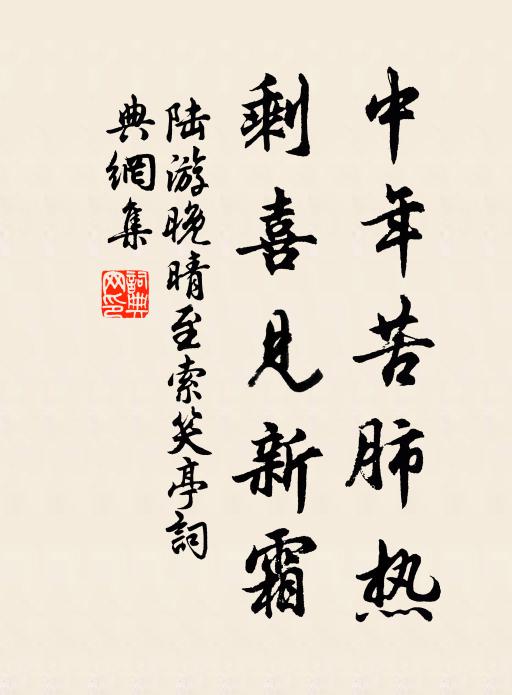 中年苦肺热
剩喜见新霜
陆游晚晴至索笑亭詞
典網集
詞典网印